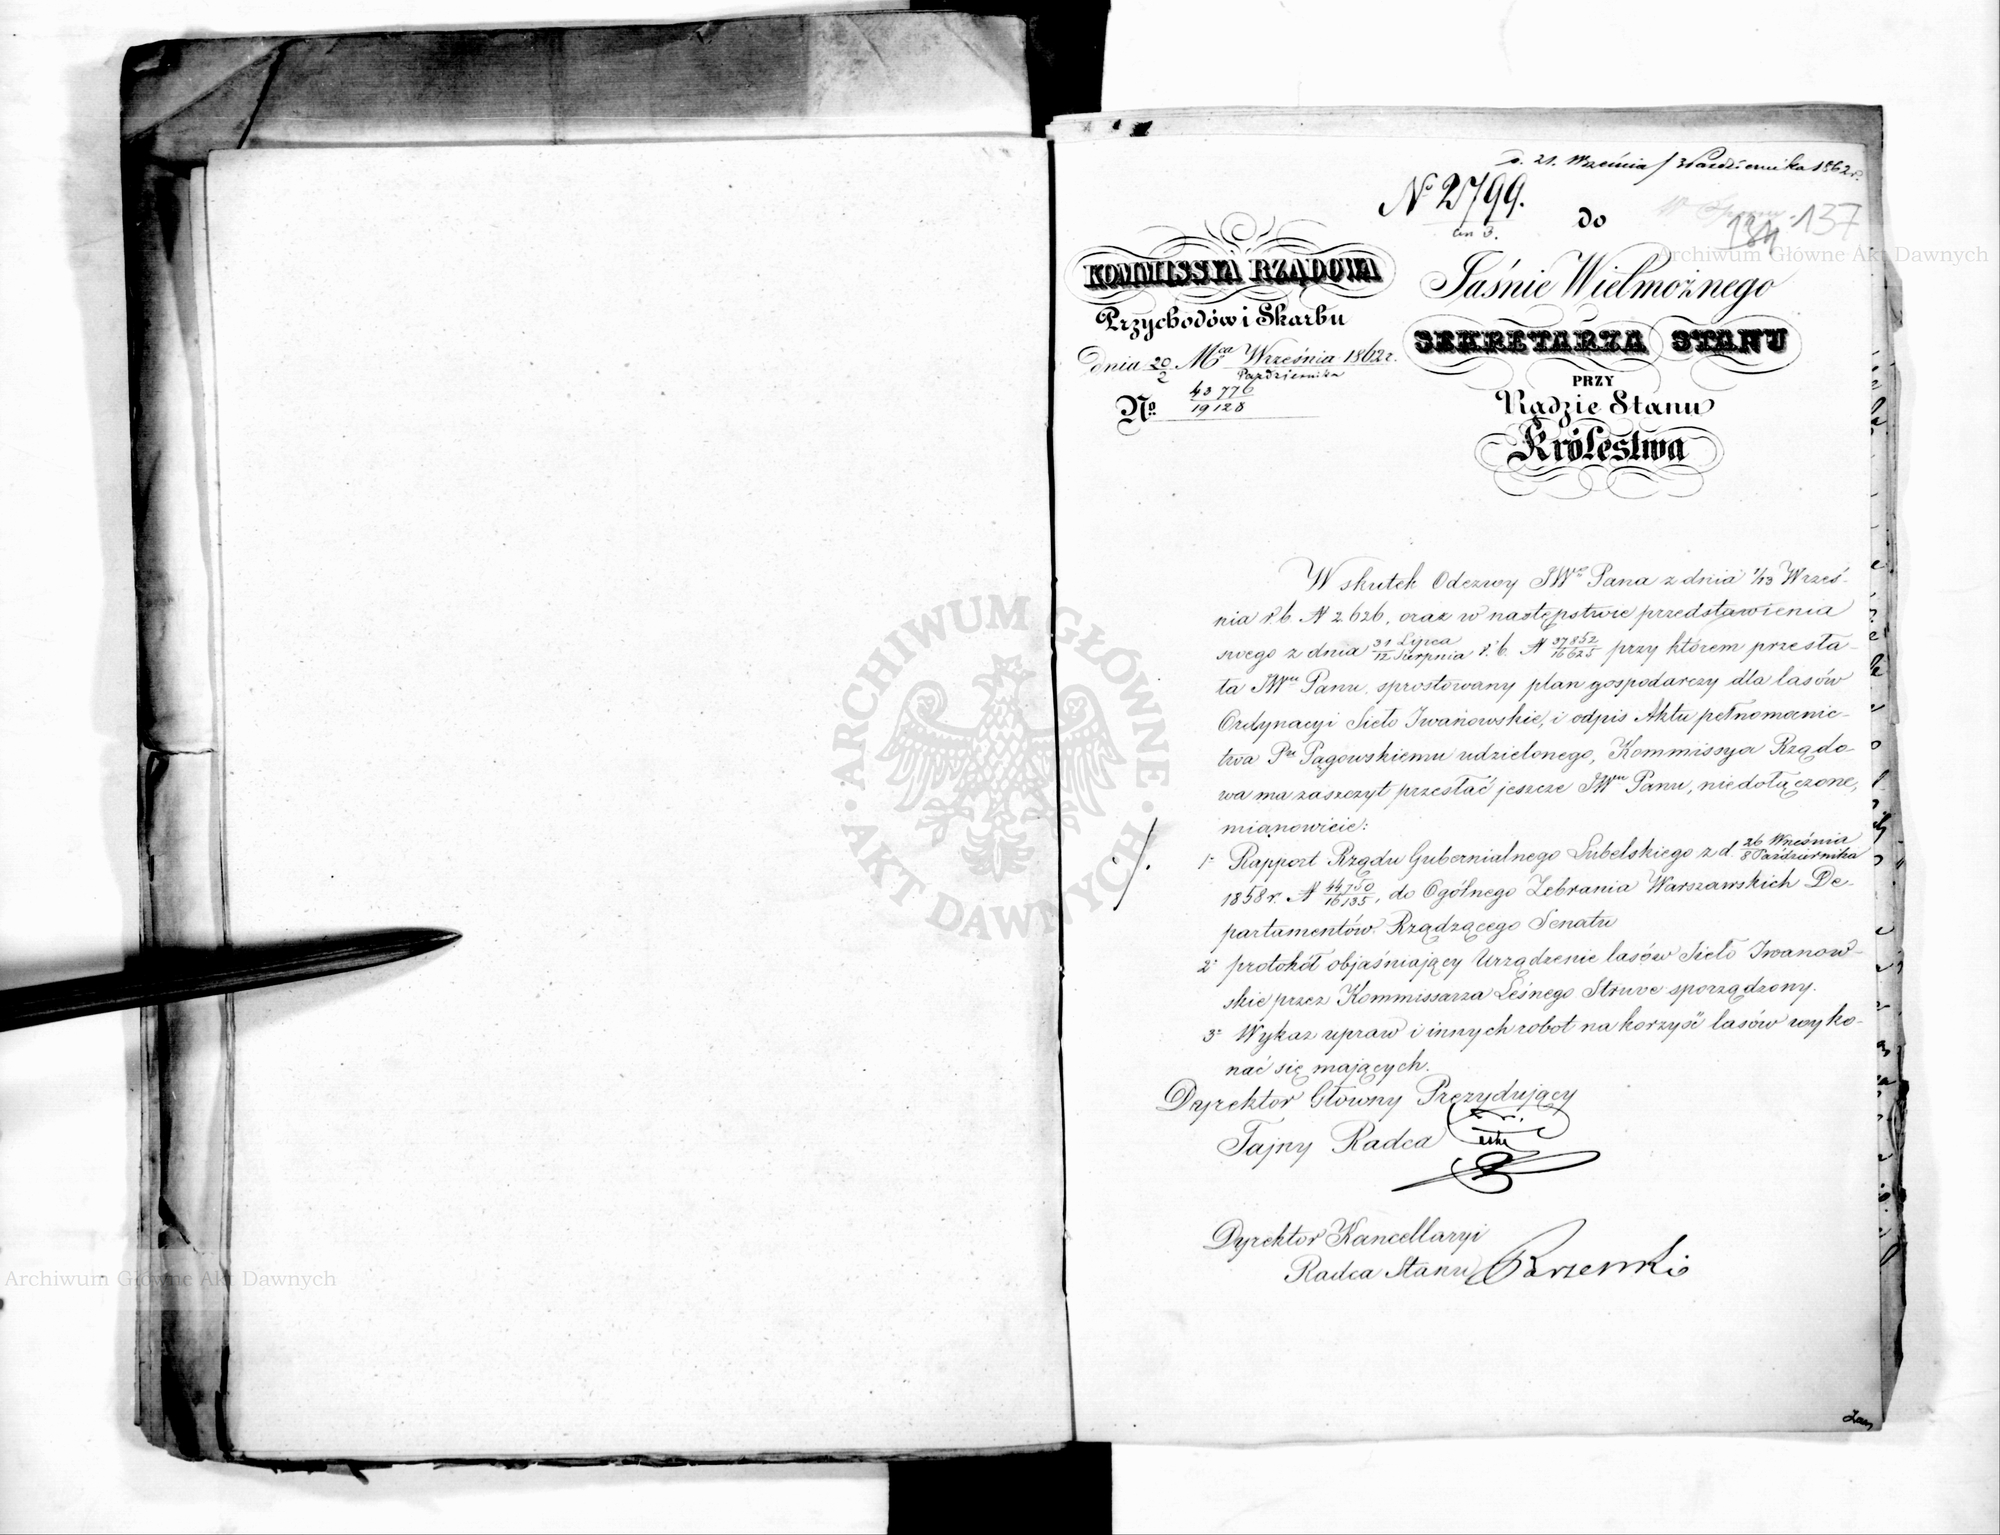 d. 21. Września / 3 Października 1862 r.
№ 2799.
an 3.
137
184
KOMMISSYA RZĄDOWA
Przychodów i Skarbu
Dnia 20/2 Mca Września/Października 1862 r.
No 43776/19128
do
Jaśnie Wielmożnego
SEKRETARZA STANU
PRZY
Radzie Stanu
Królestwa
W skutek Odezwy JWgo Pana z dnia 1/13 Wrześ-
nia r. b. N 2626, oraz w następstwie przedstawienia
swego z dnia 31 Lipca/12 Sierpnia r. b. N 37852/16625 przy którem przesła-
ła JWmu Panu, sprostowany plan gospodarczy dla lasów
Ordynacyi Sieło Iwanowskie, i odpis Aktu pełnomocnic-
twa Pu Pągowskiemu udzielonego, Kommissya Rządo-
wa ma zaszczyt przesłać jeszcze JWmu Panu, niedołączone,
mianowicie:
1- Rapport Rządu Gubernialnego Lubelskiego z d. 26 Września/8 Października
1858 r. N 44750/16135, do Ogólnego Zebrania Warszawskich De-
partamentów Rządzącego Senatu
2- protokół objaśniający Urządzenie lasów Sieło Iwanow-
skie przez Kommissarza Leśnego Struve sporządzony.
3- Wykaz upraw i innych robot na korzyść lasów wyko-
nać się mających.
Dyrektor Główny Prezydujący
Tajny Radca
Dyrektor Kancellaryi
Radca Stanu
ARCHIWUM GŁÓWNE AKT DAWNYCH
Archiwum Główne Akt Dawnych
Archiwum Główne Akt Dawnych